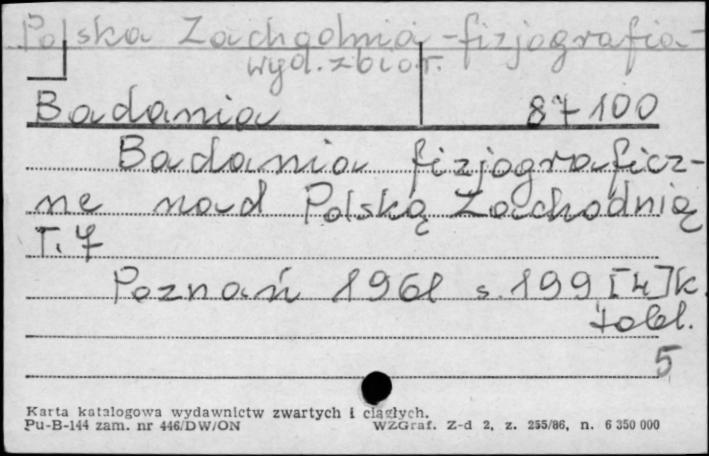 Polska Zachodnia - fizjografia -
wyd. zbior.
Badania 87100
Badania fizjograficz-
ne nad Polską Zachodnią
T. 7
Poznań 1961 s. 199 [4] k.
tabl.
5
Karta katalogowa wydawnictw zwartych i ciągłych.
Pu-B-144 zam. nr 446/DW/ON WZGraf. Z-d 2, z. 255/86, n. 6 350 000